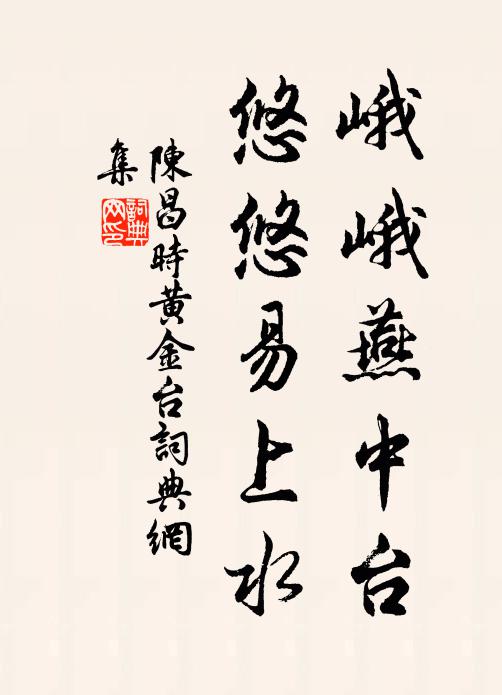 峨峨燕中台
悠悠易上水
陳昌時黃金台詞典網
集
詞典
网印